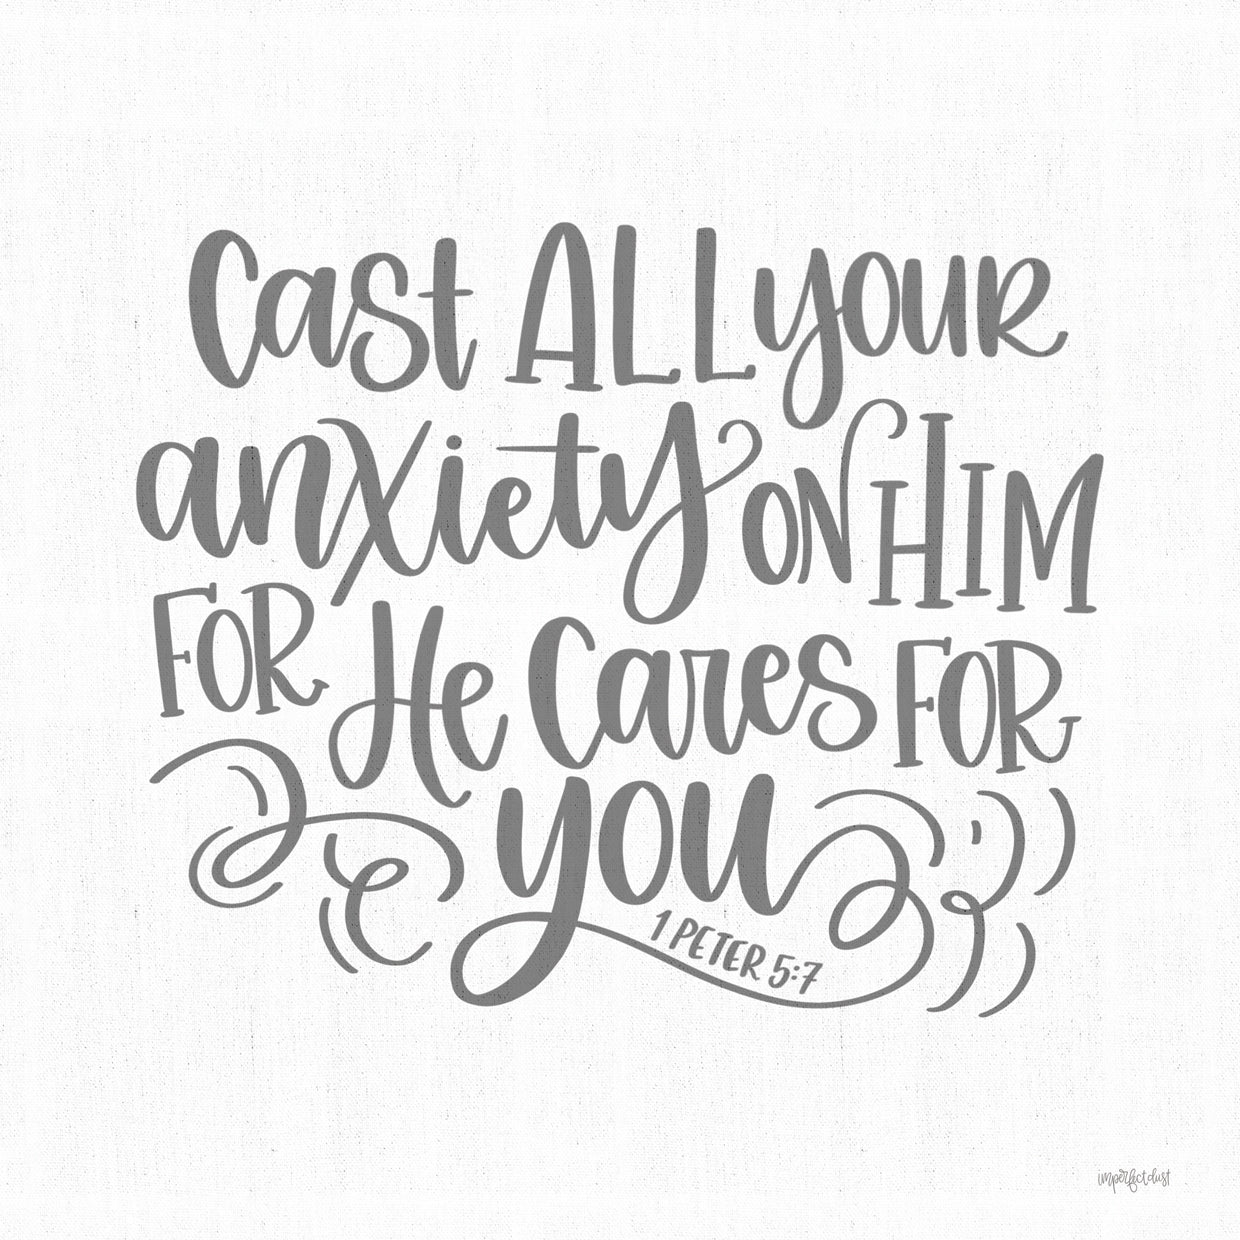 Cast ALL your
anxiety ON HIM
FOR He Cares FOR
you
1 PETER 5:7
imperfectdust